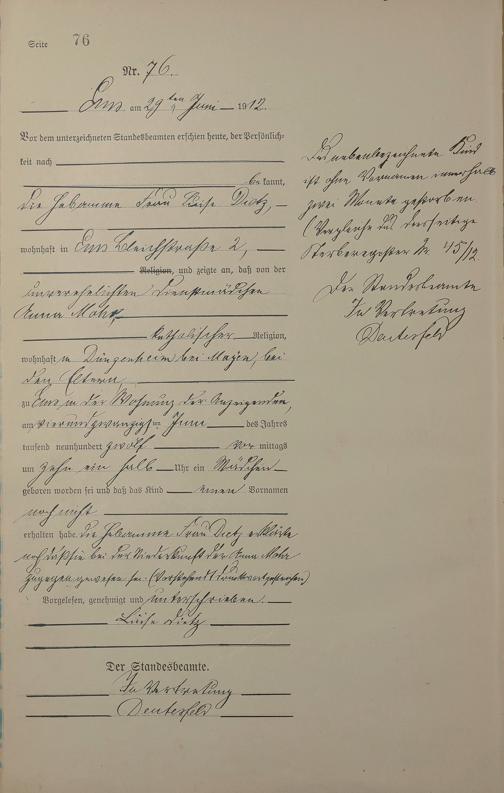 Seite 76
Nr. 76.
Ems am 29ten Juni 1912.
Vor dem unterzeichneten Standesbeamten erschien heute, der Persönlich-
keit nach
be kannt,
die Hebamme Frau Luise Dietz,
wohnhaft in Ems Bleichstraße 2,
Religion, und zeigte an, daß von der
unverehelichten Dienstmädchen
Anna Mohr,
katholischer Religion,
wohnhaft in bei Mayen, bei
den Eltern,
zu Ems in der Wohnung der Anzeigenden,
am vierundzwanzigsten Juni des Jahres
tausend neunhundert zwölf vor mittags
um zehn ein halb Uhr ein Mädchen
geboren worden sei und daß das Kind einen Vornamen
noch nicht
erhalten habe. Die Hebamme Frau Dietz erklärte
noch daß sie bei der Niederkunft der Anna Mohr
zugegen gewesen sei. (Vorstehend 1 Druckwort gestrichen)
Vorgelesen, genehmigt und unterschrieben.
Luise Dietz
Der Standesbeamte.
In Vertretung
Das nebenbezeichnete Kind
ist ohne Vornamen innerhalb
zwei Monate gestorben
(Vergleiche das diesseitige
Sterberegister Nr. 45/12.
Der Standesbeamte
In Vertretung